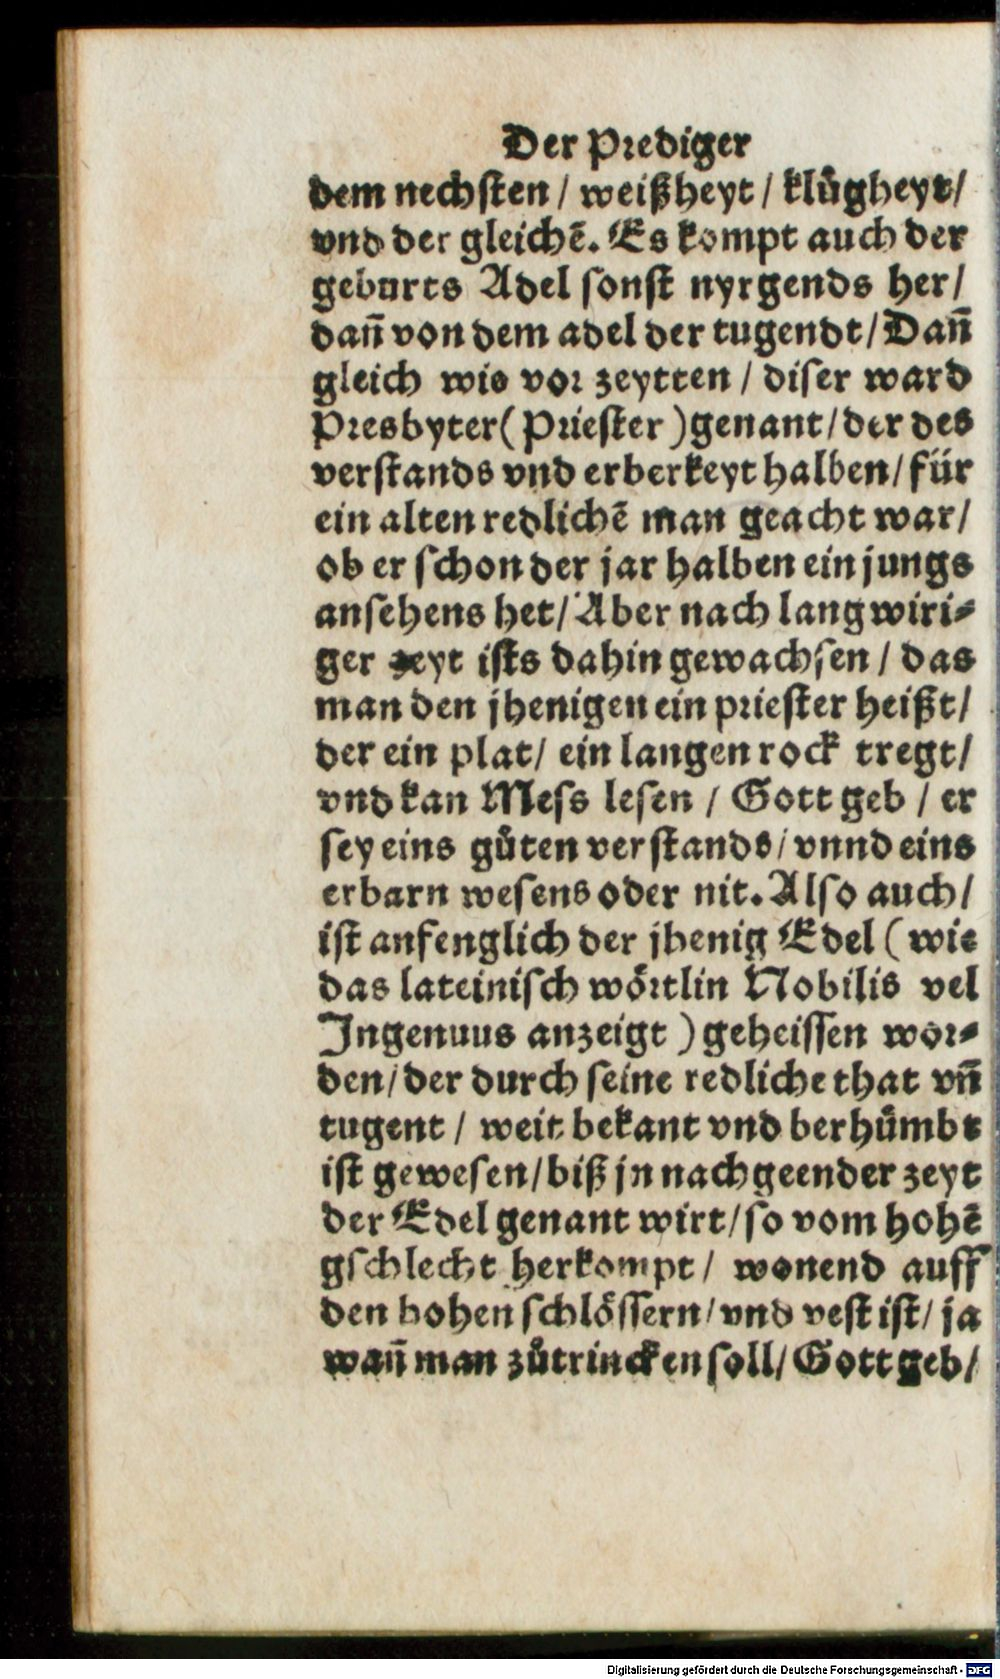 Der Prediger
dem nechsten / weißheyt / klůgheyt /
vnd der gleichē. Es kompt auch der
geburts Adel sonst nyrgends her /
dañ von dem adel der tugendt / Dañ
gleich wie vor zeytten / diser ward
Presbyter ( Priester ) genant / der des
verstands vnd erberkeyt halben / für
ein alten redlichē man geacht war /
ob er schon der jar halben ein jungs
ansehens het / Aber nach langwiri⸗
ger zeyt ists dahin gewachsen / das
man den jhenigen ein priester heißt /
der ein plat / ein langen rock tregt /
vnd kan Mess lesen / Gott geb / er
sey eins gůten verstands / vnnd eins
erbarn wesens oder nit. Also auch /
ist anfenglich der jhenig Edel ( wie
das lateinisch wörtlin Nobilis vel
Ingenuus anzeigt ) geheissen wor⸗
den / der durch seine redliche that vñ
tugent / weit bekant vnd berhůmbt
ist gewesen / biß jn nachgeender zeyt
der Edel genant wirt / so vom hohē
gschlecht herkompt / wonend auff
den hohen schlössern / vnd vest ist / ja
wañ man zůtrincken soll / Gott geb /
Digitalisierung gefördert durch die Deutsche Forschungsgemeinschaft - DFG